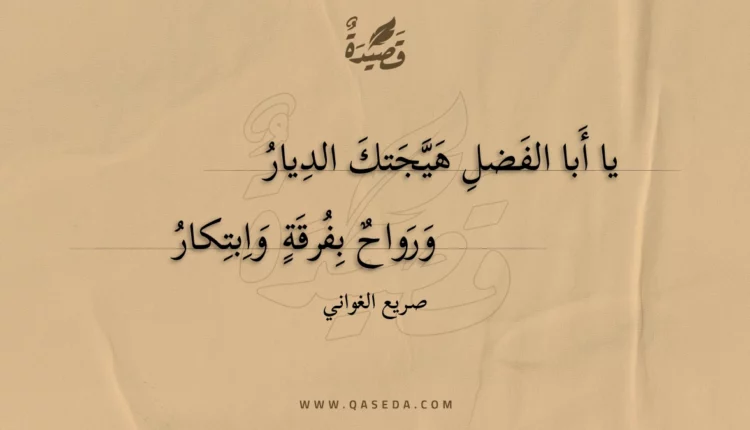 قَصِيْدَةٌ
يا أَبا الفَضلِ هَيَّجَتكَ الدِيارُ
وَرَواحٌ بِفُرقَةٍ وَاِبتِكارُ
صريع الغواني
WWW.QASEDA.COM